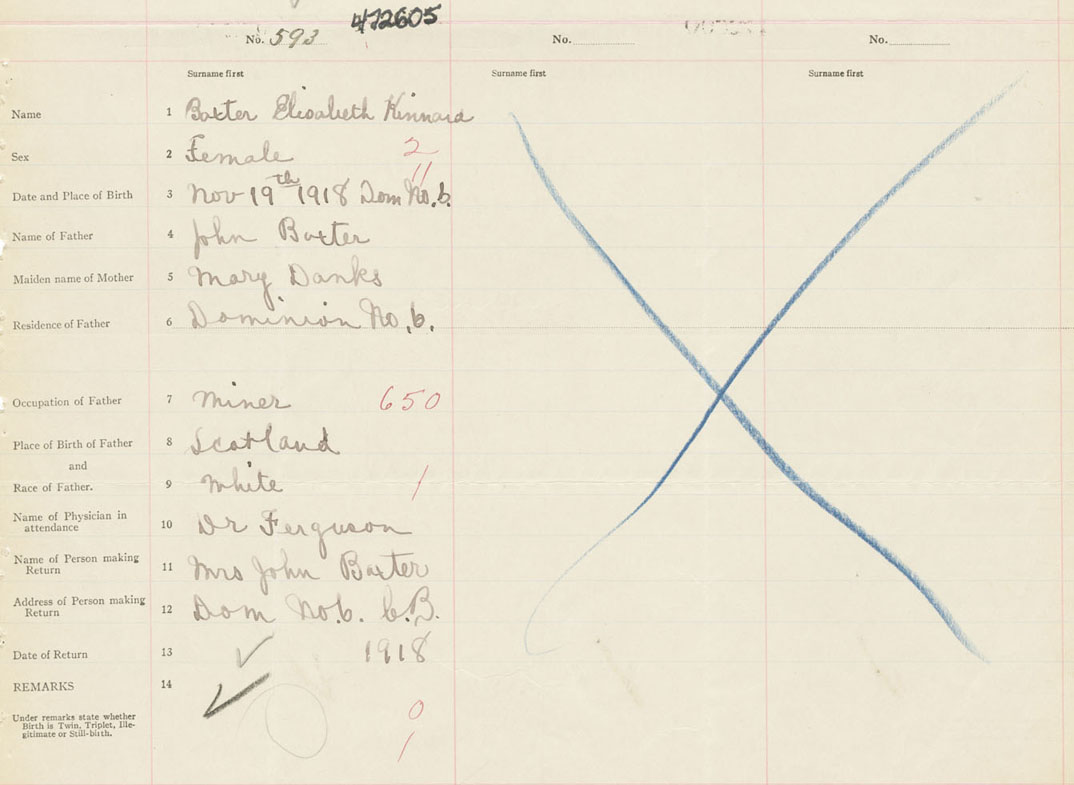 472605
No. 593 No. No.
Surname first Surname first Surname first
Name 1 Baxter Elisabeth Kinnard
Sex 2 Female 2
11
Date and Place of Birth 3 Nov 19th 1918 Dom No. 6
Name of Father 4 John Baxter
Maiden name of Mother 5 Mary Danks
Residence of Father 6 Dominion No. 6.
Occupation of Father 7 Miner 650
Place of Birth of Father 8 Scotland
and
Race of Father. 9 White 1
Name of Physician in
attendance 10 Dr Ferguson
Name of Person making
Return 11 Mrs John Baxter
Address of Person making
Return 12 Dom No6. C.B.
Date of Return 13 1918
REMARKS 14
Under remarks state whether
Birth is Twin, Triplet, Ille-
gitimate or Still-birth.
0
1